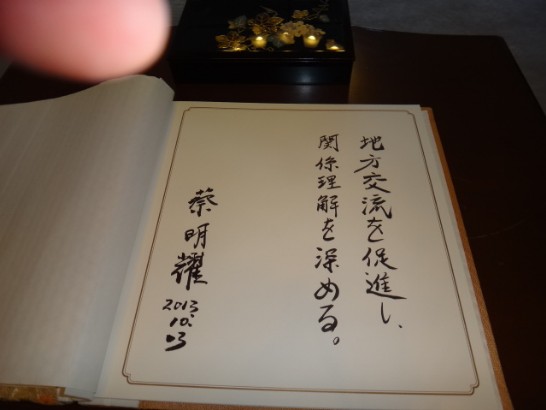 地方交流を促進し、
関係理解を深める。
蔡明耀
2013
10.
03